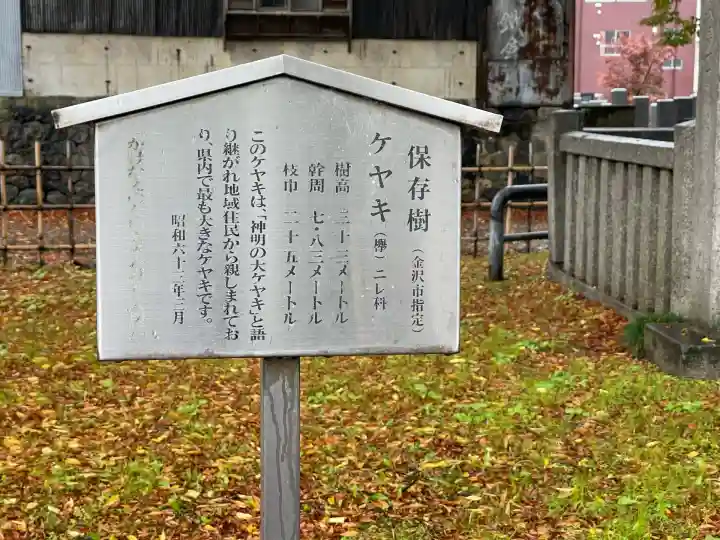 保存樹（金沢市指定）
ケヤキ（欅）ニレ科
樹高　二十三メートル
幹周　七・八三メートル
枝巾　二十五メートル
このケヤキは、「神明の大ケヤキ」と語
り継がれ地域住民から親しまれてお
り、県内で最も大きなケヤキです。
昭和六十二年三月